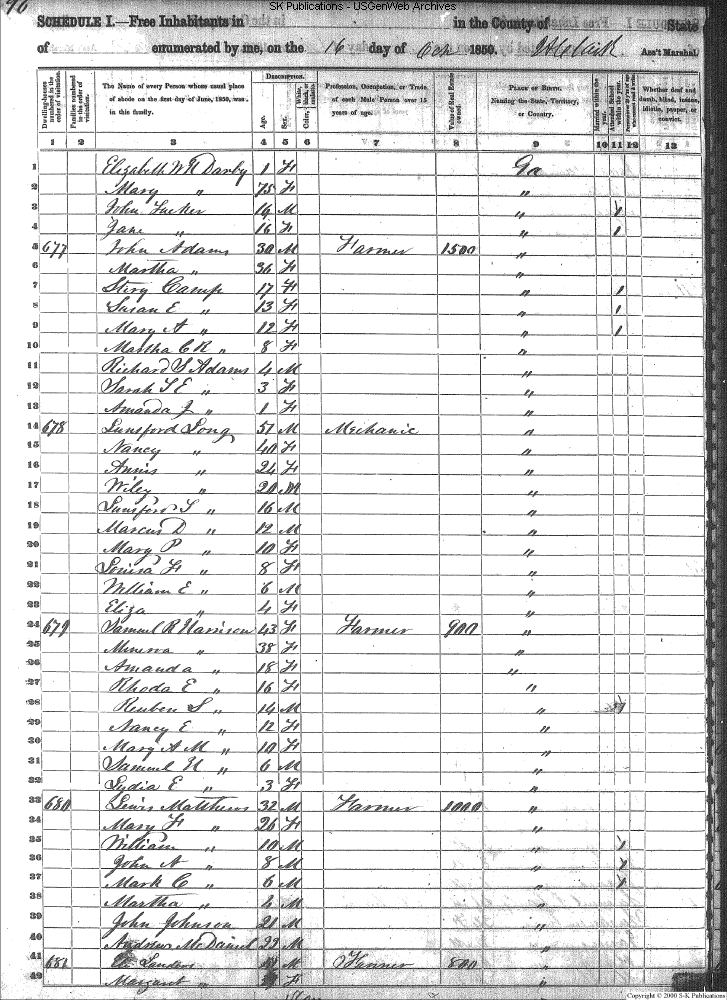 SK Publications - USGenWeb Archives
96
SCHEDULE I.—Free Inhabitants in in the County of State
of enumerated by me, on the 16 day of Oct 1850. Ass't Marshal.
Dwelling-houses numbered in the order of visitation.
Families numbered in the order of visitation.
The Name of every Person whose usual place of abode on the first day of June, 1850, was in this family.
DESCRIPTION.
Age.
Sex.
Color, White, black, or mulatto.
Profession, Occupation, or Trade of each Male Person over 15 years of age.
Value of Real Estate owned.
PLACE OF BIRTH. Naming the State, Territory, or Country.
Married within the year.
Attended School within the year.
Whether deaf and dumb, blind, insane, idiotic, pauper, or convict.
1 2 3 4 5 6 7 8 9 10 11 12 13
1 Elizabeth W R Danby 1 F Ga
2 Mary " 75 F "
3 John Tucker 16 M " 1
4 Jane " 16 F " 1
5 677 John Adams 30 M Farmer 1500 "
6 Martha " 36 F "
7 Camp 17 F " 1
8 Susan E " 13 F " 1
9 Mary A " 12 F " 1
10 Martha C R " 8 F "
11 Richard S Adams 4 M "
12 Sarah S E " 3 F "
13 Amanda J " 1 F "
14 678 Lunsford Long 51 M Mechanic "
15 Nancy " 40 F "
16 Annis " 24 F "
17 Wiley " 20 M "
18 Lunsford S " 16 M "
19 Marcus D " 12 M "
20 Mary P " 10 F "
21 Louisa F " 8 F "
22 William E " 6 M "
23 Eliza " 4 F "
24 679 Samuel R Harrison 43 F Farmer 900 "
25 Minerva " 38 F "
26 Amanda " 18 F "
27 Rhoda E " 16 F "
28 Reuben S " 14 M " 1
29 Nancy E " 12 F "
30 Mary A M " 10 F "
31 Samuel H " 6 M "
32 Lydia E " 3 F "
33 680 Lewis Matthews 32 M Farmer 1000 "
34 Mary F " 26 F "
35 William " 10 M " 1
36 John A " 8 M " 1
37 Mark C " 6 M " 1
38 Martha " 4 M "
39 John Johnson 21 M "
40 Andrew McDaniel 22 M "
41 681 Landers M Farmer 800 "
42 Margaret " F "
Copyright © 2000 S-K Publications